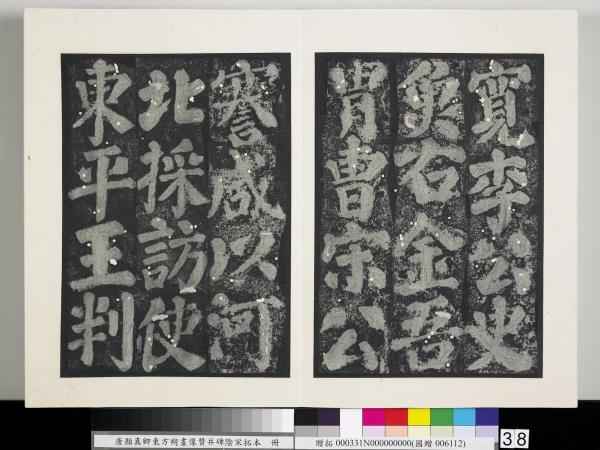 寬李公史
魚右金吾
胄曹宋公
謇咸以河
北採訪使
東平王判
唐顏真卿東方朔畫像贊并碑陰宋拓本 冊
贈拓 000331N000000000(國贈 006112)
38